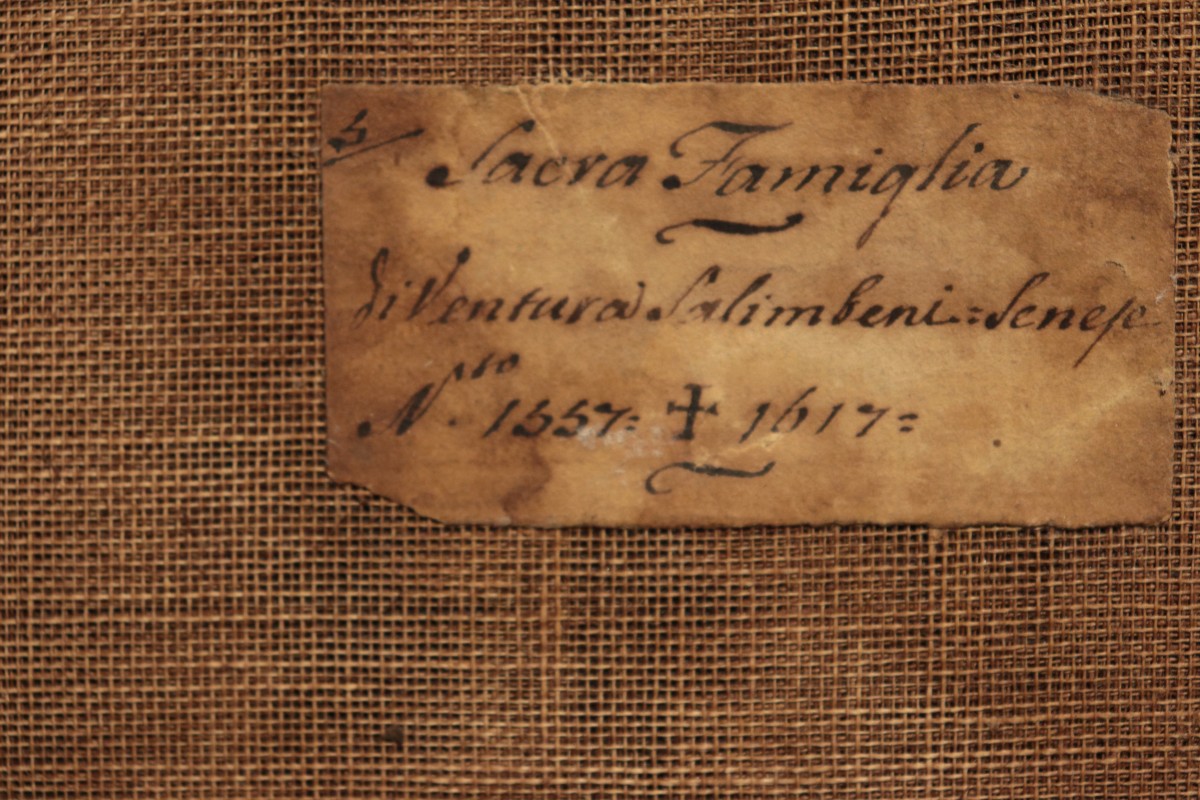 5/ Sacra Famiglia
di Ventura Salimbeni = Senese
N.to 1557 = ✝ 1617 =